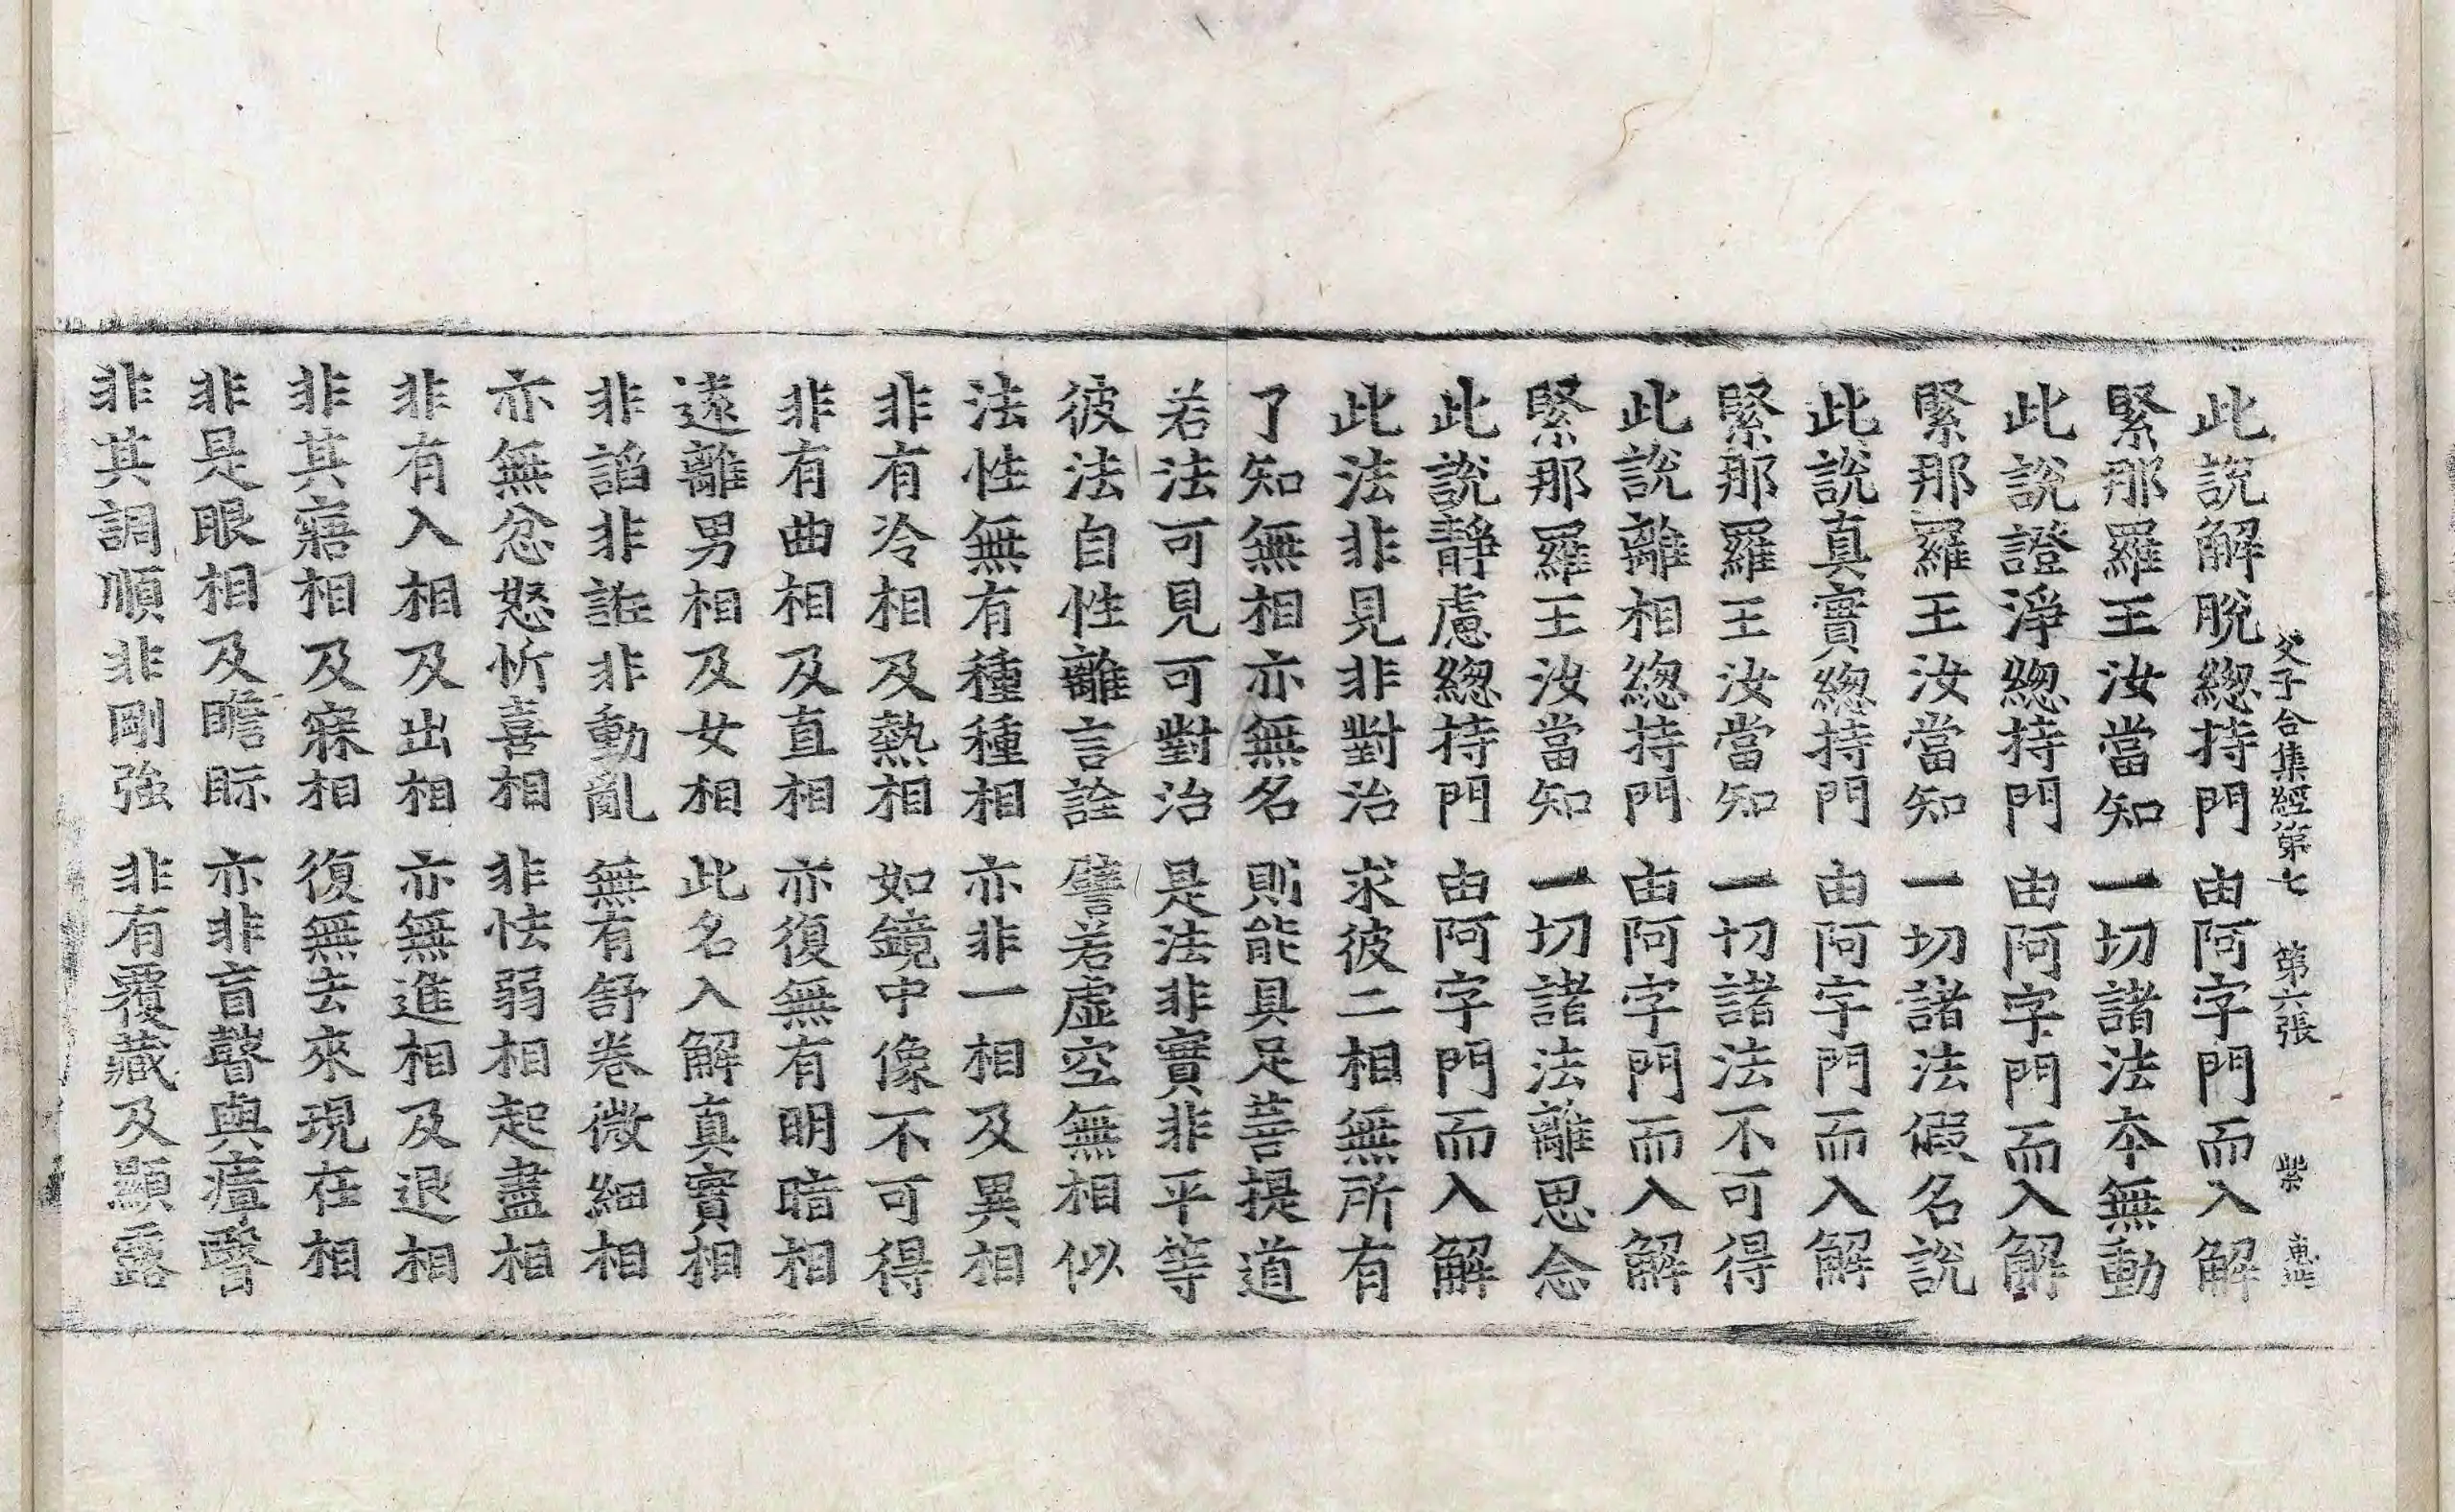 父子合集經第七 第六張 紫
此說解脫緫持門 由阿字門而入解
緊那羅王汝當知 一切諸法本無動
此說證淨緫持門 由阿字門而入解
緊那羅王汝當知 一切諸法假名說
此說真實緫持門 由阿字門而入解
緊那羅王汝當知 一切諸法不可得
此說離相緫持門 由阿字門而入解
緊那羅王汝當知 一切諸法離思念
此說靜慮緫持門 由阿字門而入解
此法非見非對治 求彼二相無所有
了知無相亦無名 則能具足菩提道
若法可見可對治 是法非實非平等
彼法自性離言詮 譬若虛空無相似
法性無有種種相 亦非一相及異相
非有冷相及熱相 如鏡中像不可得
非有曲相及直相 亦復無有明暗相
遠離男相及女相 此名入解真實相
非諂非誑非動亂 無有舒卷微細相
亦無忿怒忻喜相 非怯弱相起盡相
非有入相及出相 亦無進相及退相
非其寤相及寐相 復無去來現在相
非是眼相及瞻眎 亦非盲瞽與瘖瞖
非其調順非剛強 非有覆藏及顯露